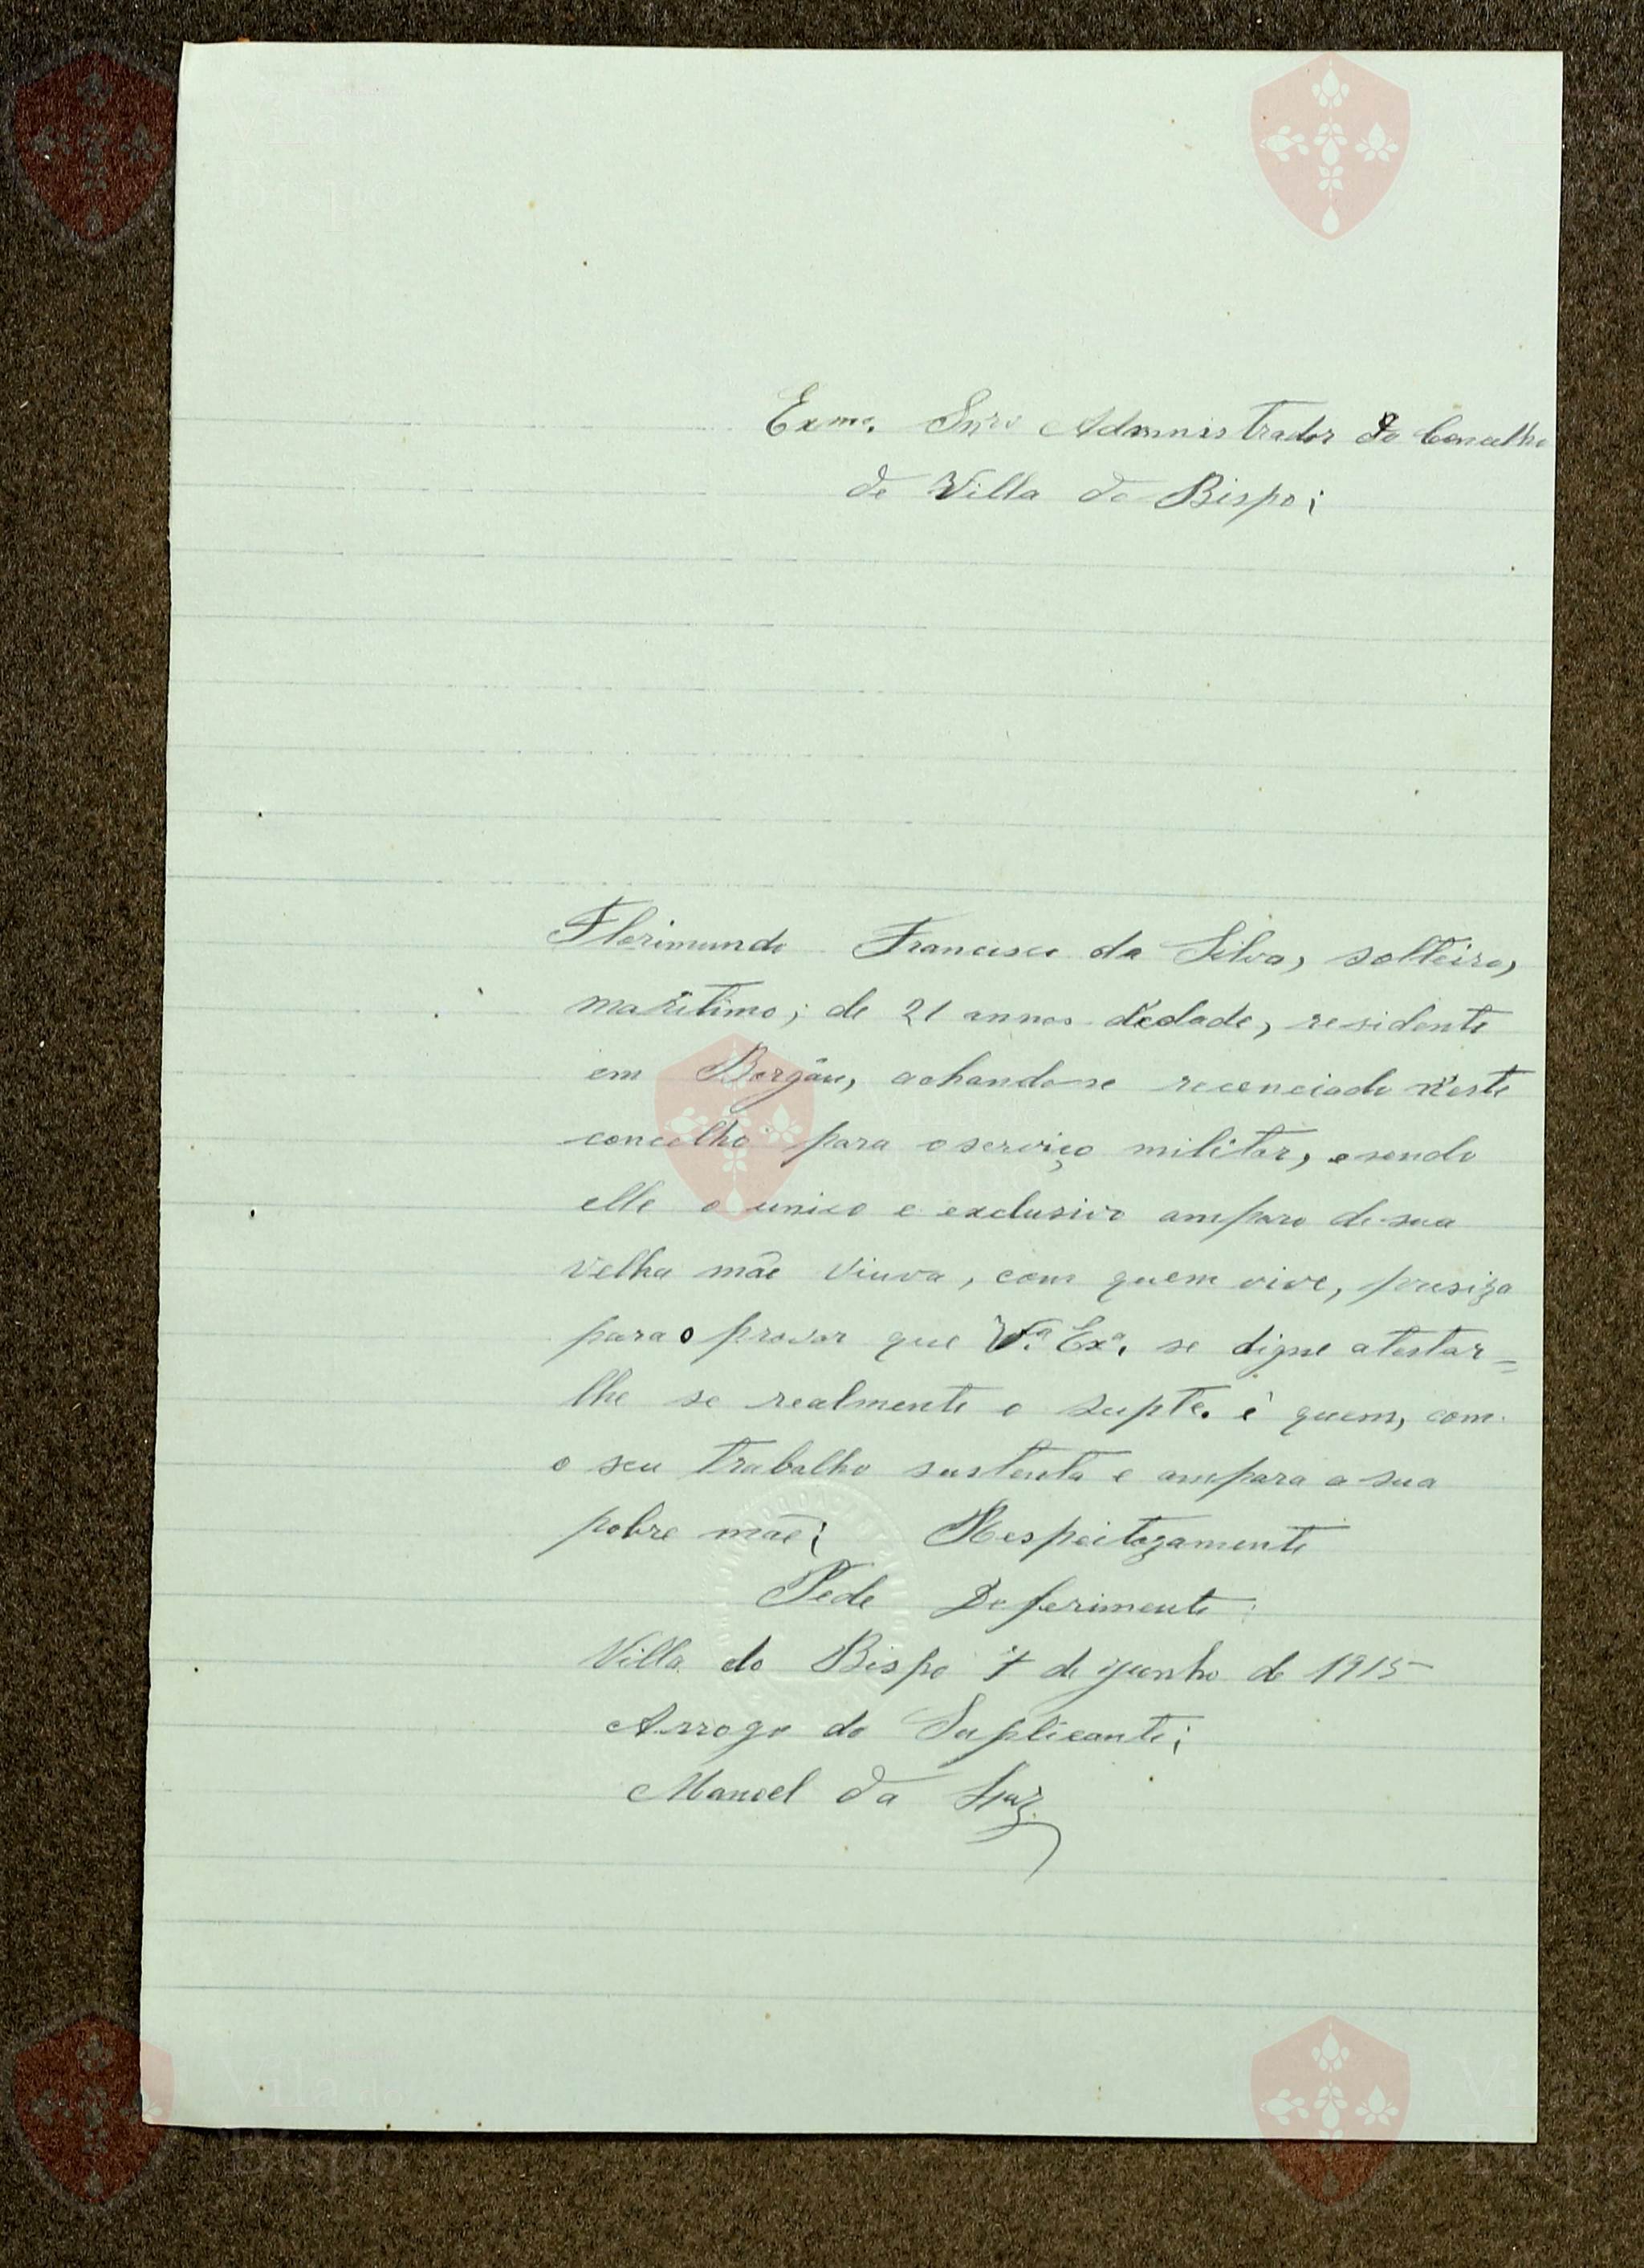 Exmo. Snro Administrador do Concelho
de Villa do Bispo;
Florimundo Francisco da Silva, solteiro,
maritimo; de 21 annos d'edade, residente
em Borgáu, achando-se recenciado n'este
concelho para o serviço militar, e sendo
elle o unico e exclusivo amparo de sua
velha mãe viuva, com quem vive, presiza
para o provar que V.ª Exª. se digne atestar=
lhe se realmente o supte. é quem, com
o seu trabalho sustenta e ampara a sua
pobre mãe; Respeitozamente
Pede Deferimento:
Villa do Bispo 7 de junho de 1915
Arrogo do Suplicante;
Manoel da Luz
Vila do
Bispo